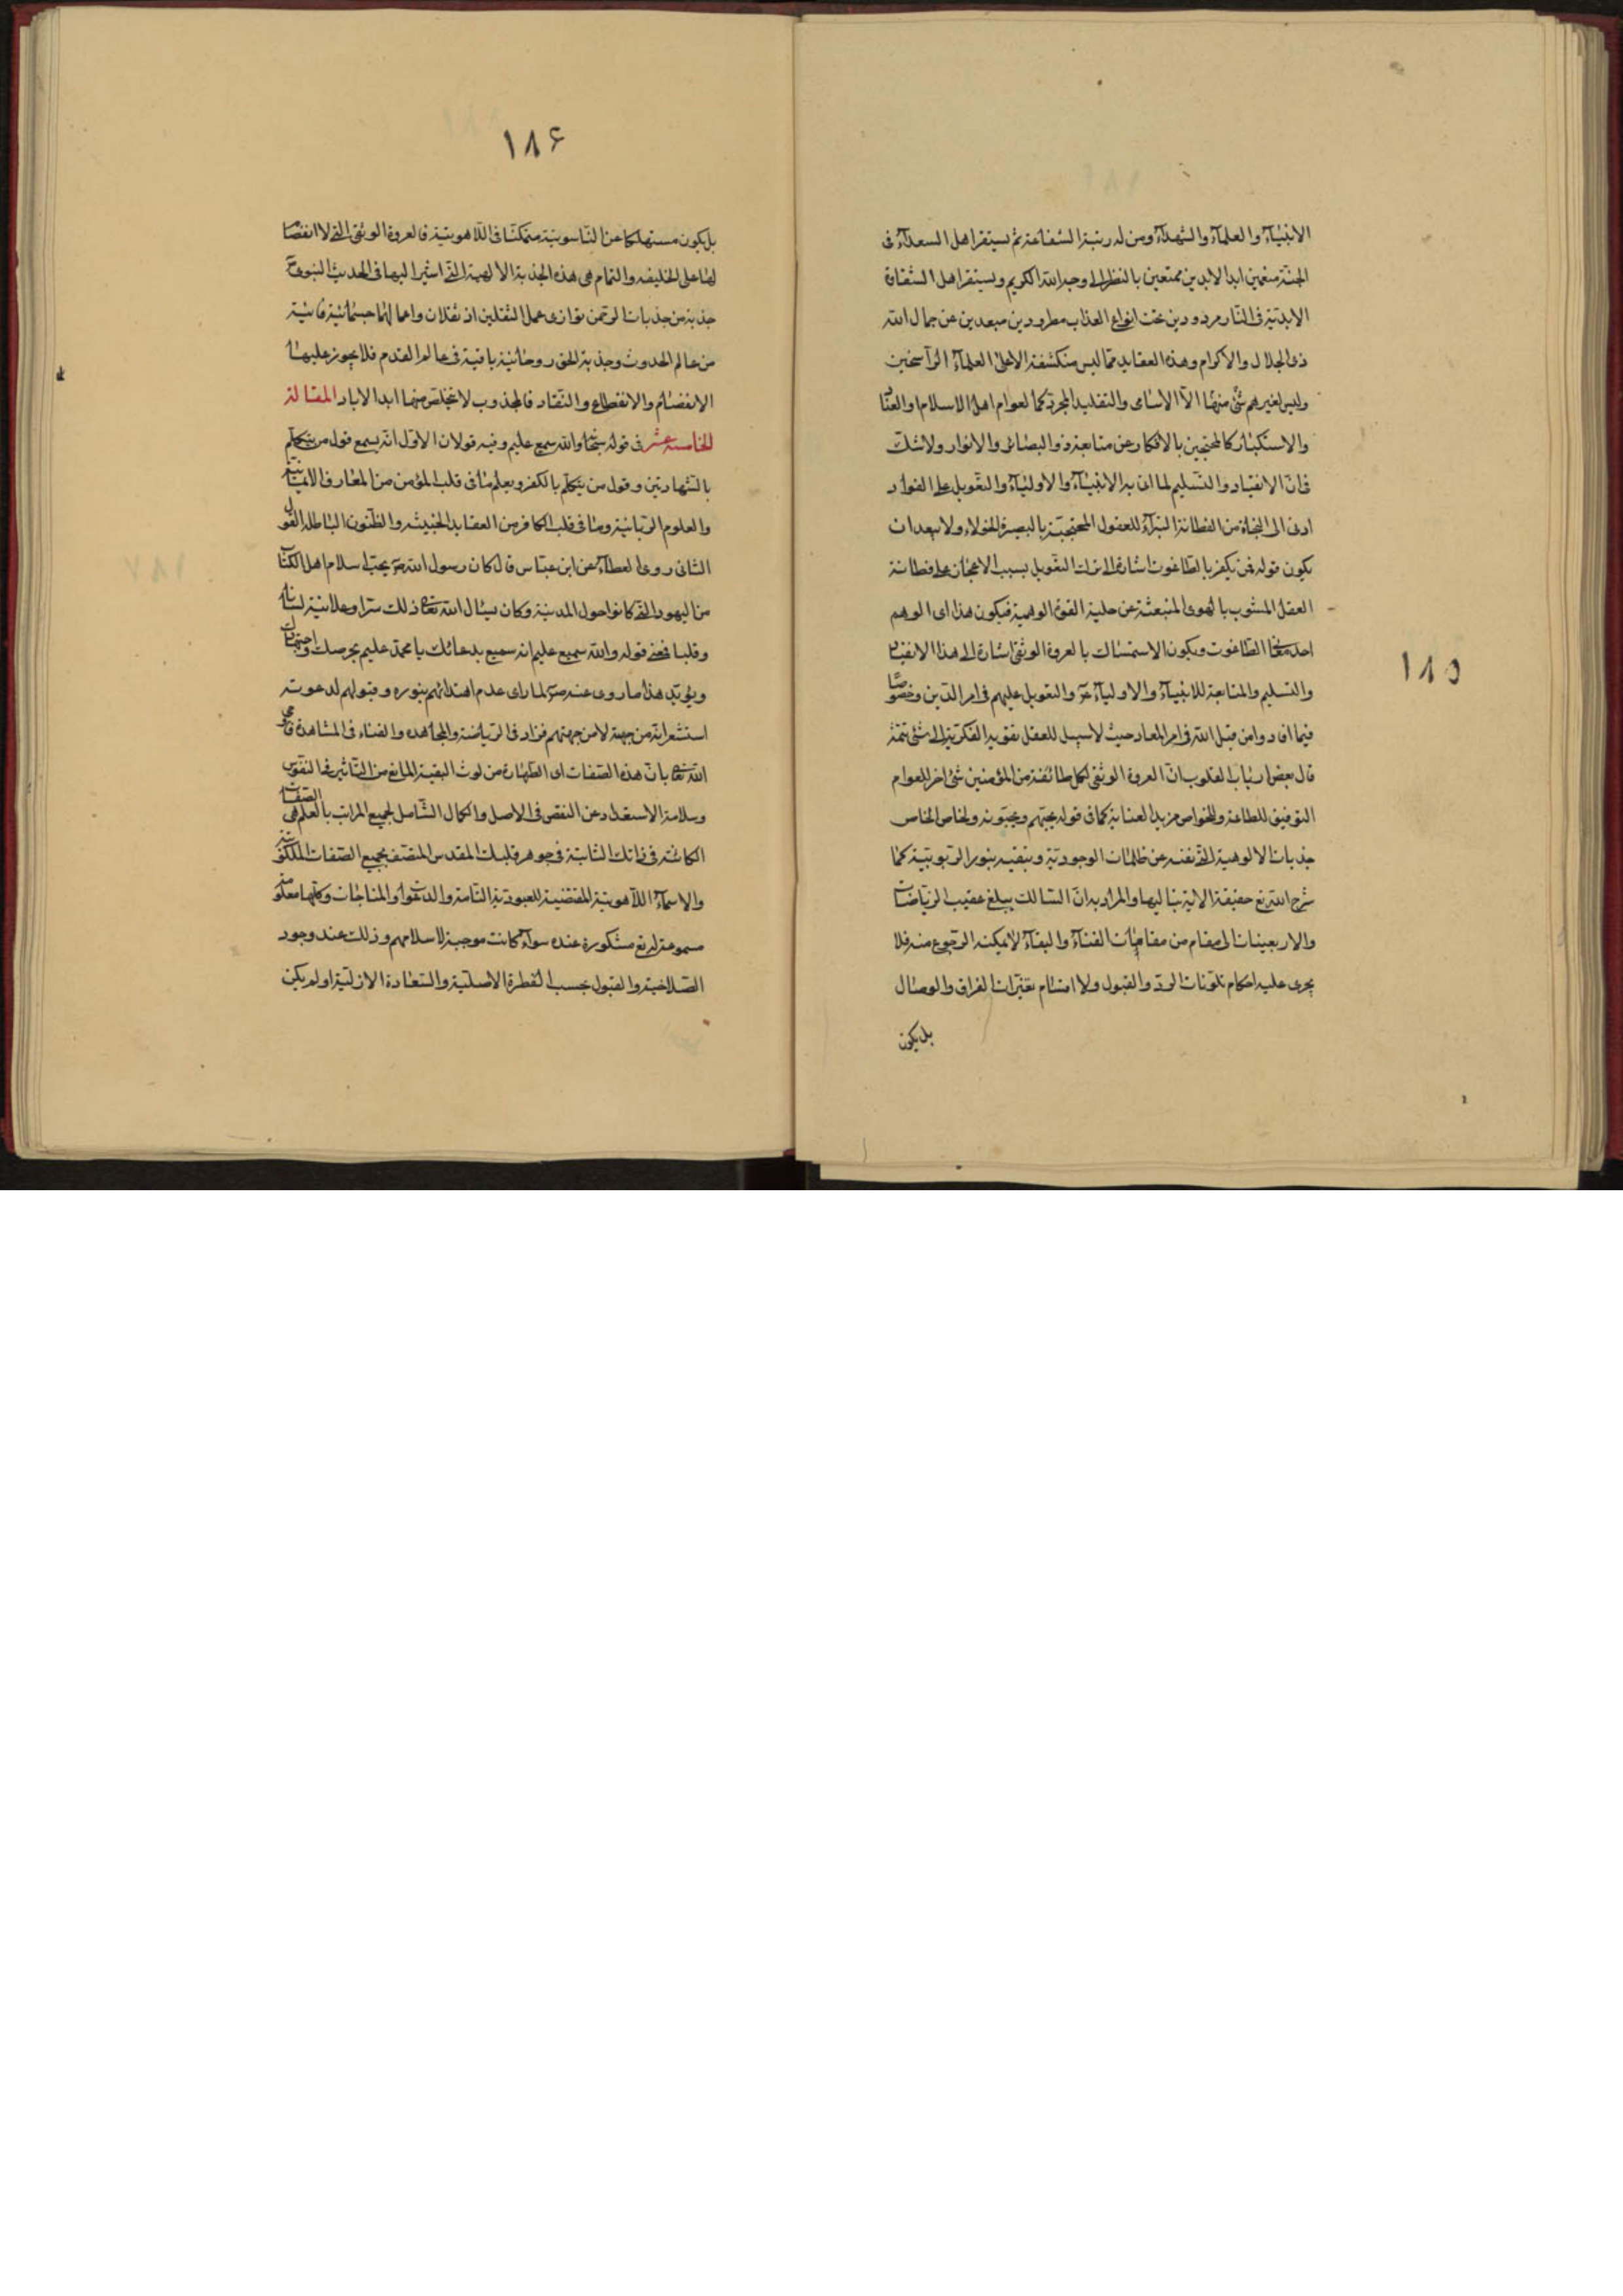 ١٨٥
الانبياء والعلماء والشهداء ومن له رتبة الشفاعة ثم يستقر اهل السعداء فى
الجنة منعمين ابد الابدين ممتعين بالنظر الى وجه الله الكريم ويستقر اهل الشقاوة
الابدية فى النار مردودين تحت انواع العذاب مطرودين مبعدين عن جمال الله
ذى الجلال والاكرام وهذه العقايد مما ليس منكشفة الا على العلماء الراسخين
وليس لغيرهم شئ منها الا الاسامى والتقليد المجرد كما لعوام اهل الاسلام او العناد
والاستكبار كالمحتجبين بالافكار عن متابعة ذوالبصائر والانوار ولا شك
فى ان الانقياد والتسليم لما اتى به الانبياء والاولياء والتعويل على القواد
ادنى الى النجاة من الفطانة البتراء للعقول المحتجبة بالبصيرة الحولاء ولا يبعد ان
يكون قوله فمن يكفر بالطاغوت اشارة الى ترك التعويل بسبب الاعجاب على فطانة
العقل المشوب بالهوى المنبعثة عن حلية القوة الوهمية فيكون هذا اى الوهم
احد معانى الطاغوت ويكون الاستمساك بالعروة الوثقى اشارة الى هذا الانقياد
والتسليم والمتابعة للانبياء والاولياء ع والتعويل عليهم فى امر الدين وخصوصا
فيما افادوا من قبل الله فى امر المعاد حيث لا سبيل للعقل بقوته الفكرية الى شئ تتمة
قال بعض ارباب القلوب ان العروة الوثقى لكل طائفة من المؤمنين شئ اخر للعوام
التوفيق للطاعة وللخواص مزيد العناية كما فى قوله يحبهم ويحبونه ولخاص الخاص
جذبات الالوهية التى تفنيه عن ظلمات الوجودية وتبقيه بنور الربوبية كما
شرح الله تع حقيقة الاية بتاليها والمراد به ان السالك يبلغ عقيب الرياضات
والاربعينات الى مقام من مقامات الفناء والبقاء لا يمكنه الرجوع منه فلا
يجرى عليه احكام تلونات الرد والقبول ولا اقسام تغيرات الفراق والوصال
بل يكون
١٨۶
بل يكون مستهلكا عن الناسوتية متمكنا فى اللاهوتية فالعروة الوثقى التى لا انفصام
لها على الحقيقه والتمام هى هذه الجذبة الالهية التى اشير اليها فى الحديث النبوى ص
جذبة من جذبات الرحمن توازى عمل الثقلين اذ ثقلان واعمالهما جسمانية فانية
من عالم الحدوث وجذبة الحق روحانية باقية فى عالم القدم فلا يجوز عليها
الانفصام والانقطاع والنفاد فالمجذوب لا يتخلص منها ابد الاباد المقالة
الخامسه عشر فى قوله سبحانه والله سميع عليم وفيه قولان الاول انه يسمع قول من يتكلم
بالشهادتين وقول من يتكلم بالكفر ويعلم ما فى قلب المؤمن من المعارف الايمانية
والعلوم الربانية وما فى قلب الكافر من العقايد الخبيثه والظنون الباطله القول
الثانى روى عطاء عن ابن عباس قال كان رسول الله ص يحب اسلام اهل الكتاب
من اليهود التى كانوا حول المدينة وكان يسأل الله تعالى ذلك سرا وعلانية لسانا
وقلبا فمعنى قوله والله سميع عليم انه سميع بدعائك يا محمد عليم بحرصك واجتهادك
ويؤيد هذا ما روى عنه ص لما راى عدم اهتدائهم بنوره وقبولهم لدعوته
استشعر انه من جهته لا من جهتهم فزاد فى الرياضة والمجاهده والفناء فى المشاهدة فاوحى
الله تعالى بان هذه الصفات اى الطهارة من لوث البقية المانع من التاثير فى النفوس
وسلامة الاستعداد عن النقص فى الاصل والكمال الشامل لجميع المراتب بالعلم هى الصفات
الكائنة فى ذاتك الثابتة فى جوهر قلبك المقدس المتصف بجميع الصفات الملكوتية
والاسماء اللاهوتية المقتضية للعبودية التامة والدعوات والمناجات وكلها معلومة
مسموعة له تع مشكورة عنده سواء كانت موجبة لاسلامهم وذلك عند وجود
الصلاحية والقبول بحسب الفطرة الاصلية والسعادة الازلية او لم يكن